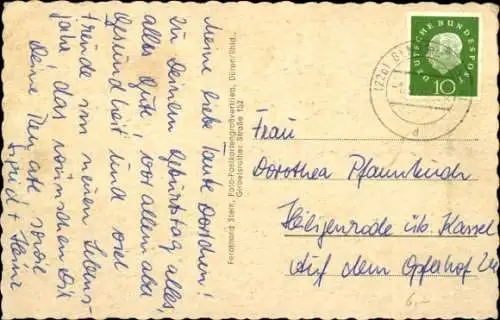 Meine liebe Tante Dorchen!
Zu Deinem Geburtstag alles,
alles Gute! vor allem aber
Gesundheit und viel
Freude im neuen Lebens-
jahr, das wünschen Dir
Deine
Ferdinand Stein, Foto-Postkartengroßvertrieb, Düren/Rhld.
Girbelsrather Straße 152
DEUTSCHE BUNDESPOST
10
(22c)
d
Frau
Dorothea Pfannkuch
Heiligenrode üb. Kassel
Auf dem Opferhof
6,-